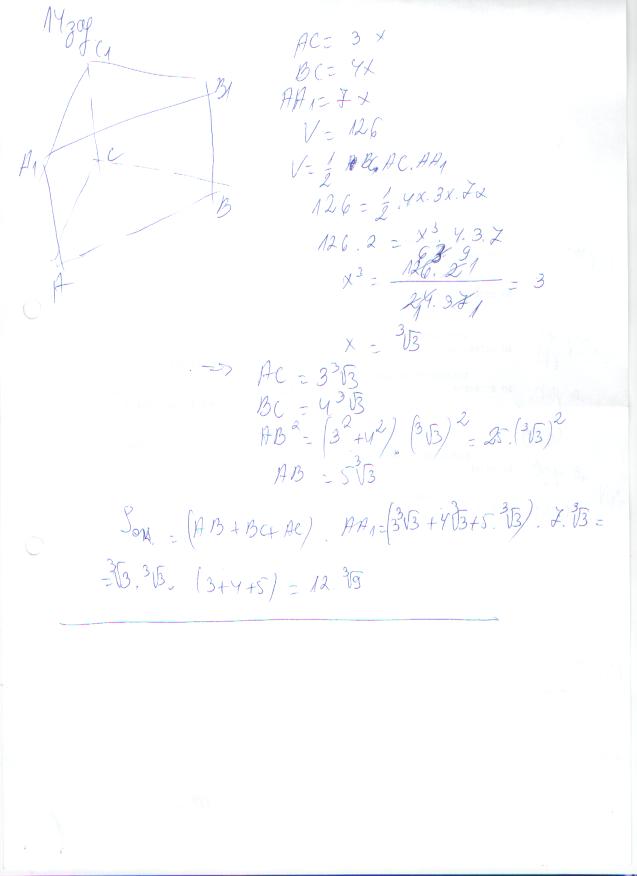 14 зад
C1
B1
A1
C
B
A
AC = 3x
BC = 4x
AA1 = 7x
V = 126
V = 1/2 BC. AC. AA1
126 = 1/2 . 4x. 3x. 7x
126. 2 = x³. 4. 3. 7
x³ = 126. 2 / 4. 3. 7 = 3
x = ³√3
=> AC = 3³√3
BC = 4³√3
AB² = (3² + 4²). (³√3)² = 25. (³√3)²
AB = 5³√3
Sок = (AB + BC + AC). AA1 = (3³√3 + 4³√3 + 5. ³√3). 7. ³√3 =
= ³√3. ³√3. (3+4+5) = 12 ³√9